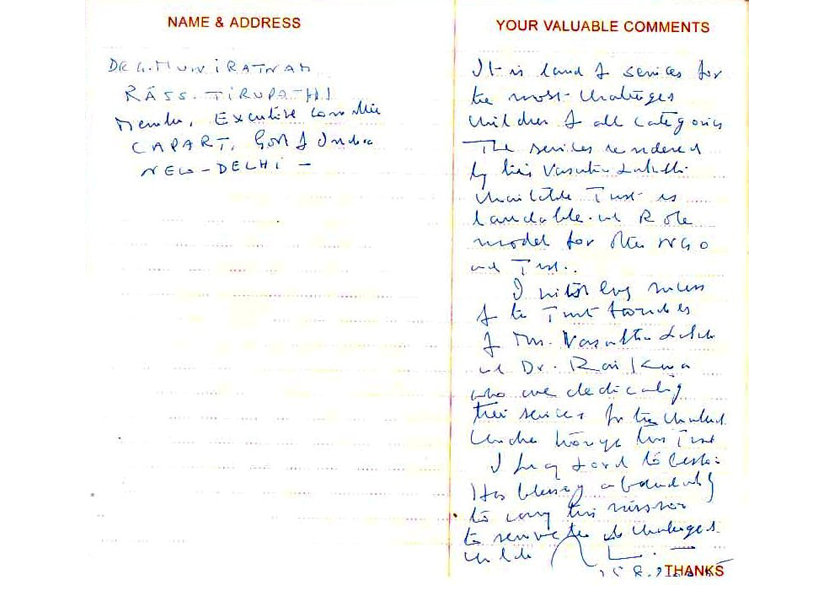 NAME & ADDRESS
DR G. MUNIRATNAM
RASS. TIRUPATHI
Member, Executive Committee
CAPART, Govt of India
NEW-DELHI -
YOUR VALUABLE COMMENTS
It is kind of services for
the most challenges
children of all categories
The services rendered
by this Vasantha Lakshmi
Charitable Trust is
laudable and Role
model for other NGO
and Trust..
I wish every success
of the Trust founders
of Mrs. Vasantha Lakshmi
and Dr. Ravi Kumar
who are dedicating
their services for the
this Trust
I pray Lord to
His blessing abundantly
to carry this mission
to serve the challenged
THANKS